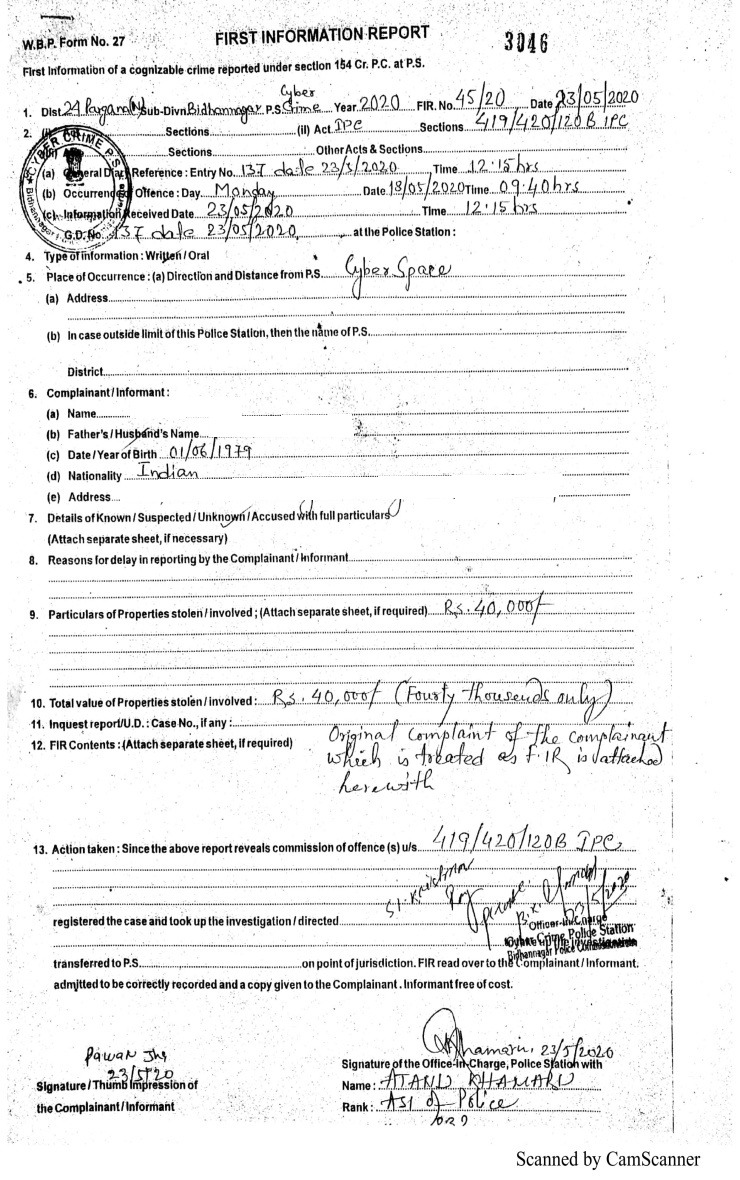 W.B.P. Form No. 27
FIRST INFORMATION REPORT
3046
First Information of a cognizable crime reported under section 154 Cr. P.C. at P.S.
Cyber
1. Dist. 24 Pargana (N) Sub-Divn Bidhannagar P.S. Crime Year 2020 FIR. No. 45/20 Date 23/05/2020
2. Sections (ii) Act. IPC Sections 419/420/120B IPC
Sections Other Acts & Sections
(a) General Diary Reference : Entry No. 137 date 23/5/2020 Time 12:15 hrs
(b) Occurrence of Offence : Day Monday Date 18/05/2020 Time 09:40 hrs
(c) Information Received Date 23/05/2020 Time 12:15 hrs
G.D. No. 137 date 23/05/2020 at the Police Station :
CYBER CRIME P.S.
4. Type of information : Written / Oral
5. Place of Occurrence : (a) Direction and Distance from P.S. Cyber Space
(a) Address
(b) In case outside limit of this Police Station, then the name of P.S.
District
6. Complainant / Informant :
(a) Name
(b) Father's / Husband's Name
(c) Date / Year of Birth 01/06/1979
(d) Nationality Indian
(e) Address
7. Details of Known / Suspected / Unknown / Accused with full particulars
(Attach separate sheet, if necessary)
8. Reasons for delay in reporting by the Complainant / Informant
9. Particulars of Properties stolen / involved ; (Attach separate sheet, if required) Rs. 40,000/-
10. Total value of Properties stolen / involved : Rs. 40,000/- (Fourty thousends only)
11. Inquest report / U.D. : Case No., if any :
12. FIR Contents : (Attach separate sheet, if required) Original complaint of the complainant
which is treated as F.IR is attached
herewith
13. Action taken : Since the above report reveals commission of offence (s) u/s 419/420/120B IPC
SI. Krishna
registered the case and took up the investigation / directed
23/5/2020
Officer-In-Charge
Cyber Crime Police Station
Bidhannagar Police Commissionerate
to take up the investigation
transferred to P.S. on point of jurisdiction. FIR read over to the Complainant / Informant.
admitted to be correctly recorded and a copy given to the Complainant . Informant free of cost.
Pawan Jha
23/5/20
Signature / Thumb Impression of
the Complainant / Informant
23/5/2020
Signature of the Office-in-Charge, Police Station with
Name : ATANU KHAMARU
Rank : ASI of Police
Scanned by CamScanner